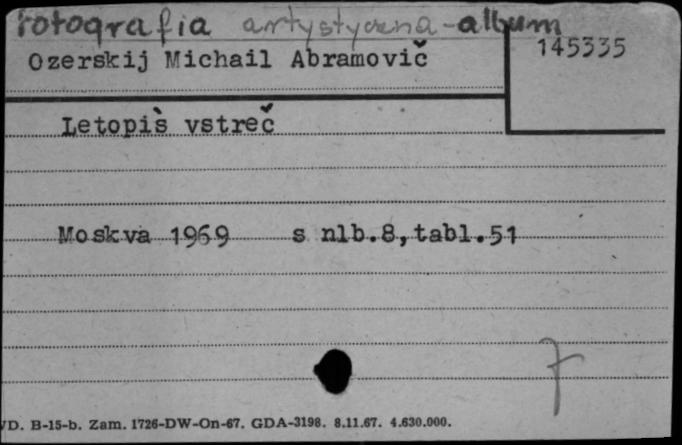 fotografia artystyczna - album
Ozerskij Michail Abramovič
145335
Letopis̀ vstreč
Moskva 1969 s nlb.8,tabl.51
7
VD. B-15-b. Zam. 1726-DW-On-67. GDA-3198. 8.11.67. 4.630.000.